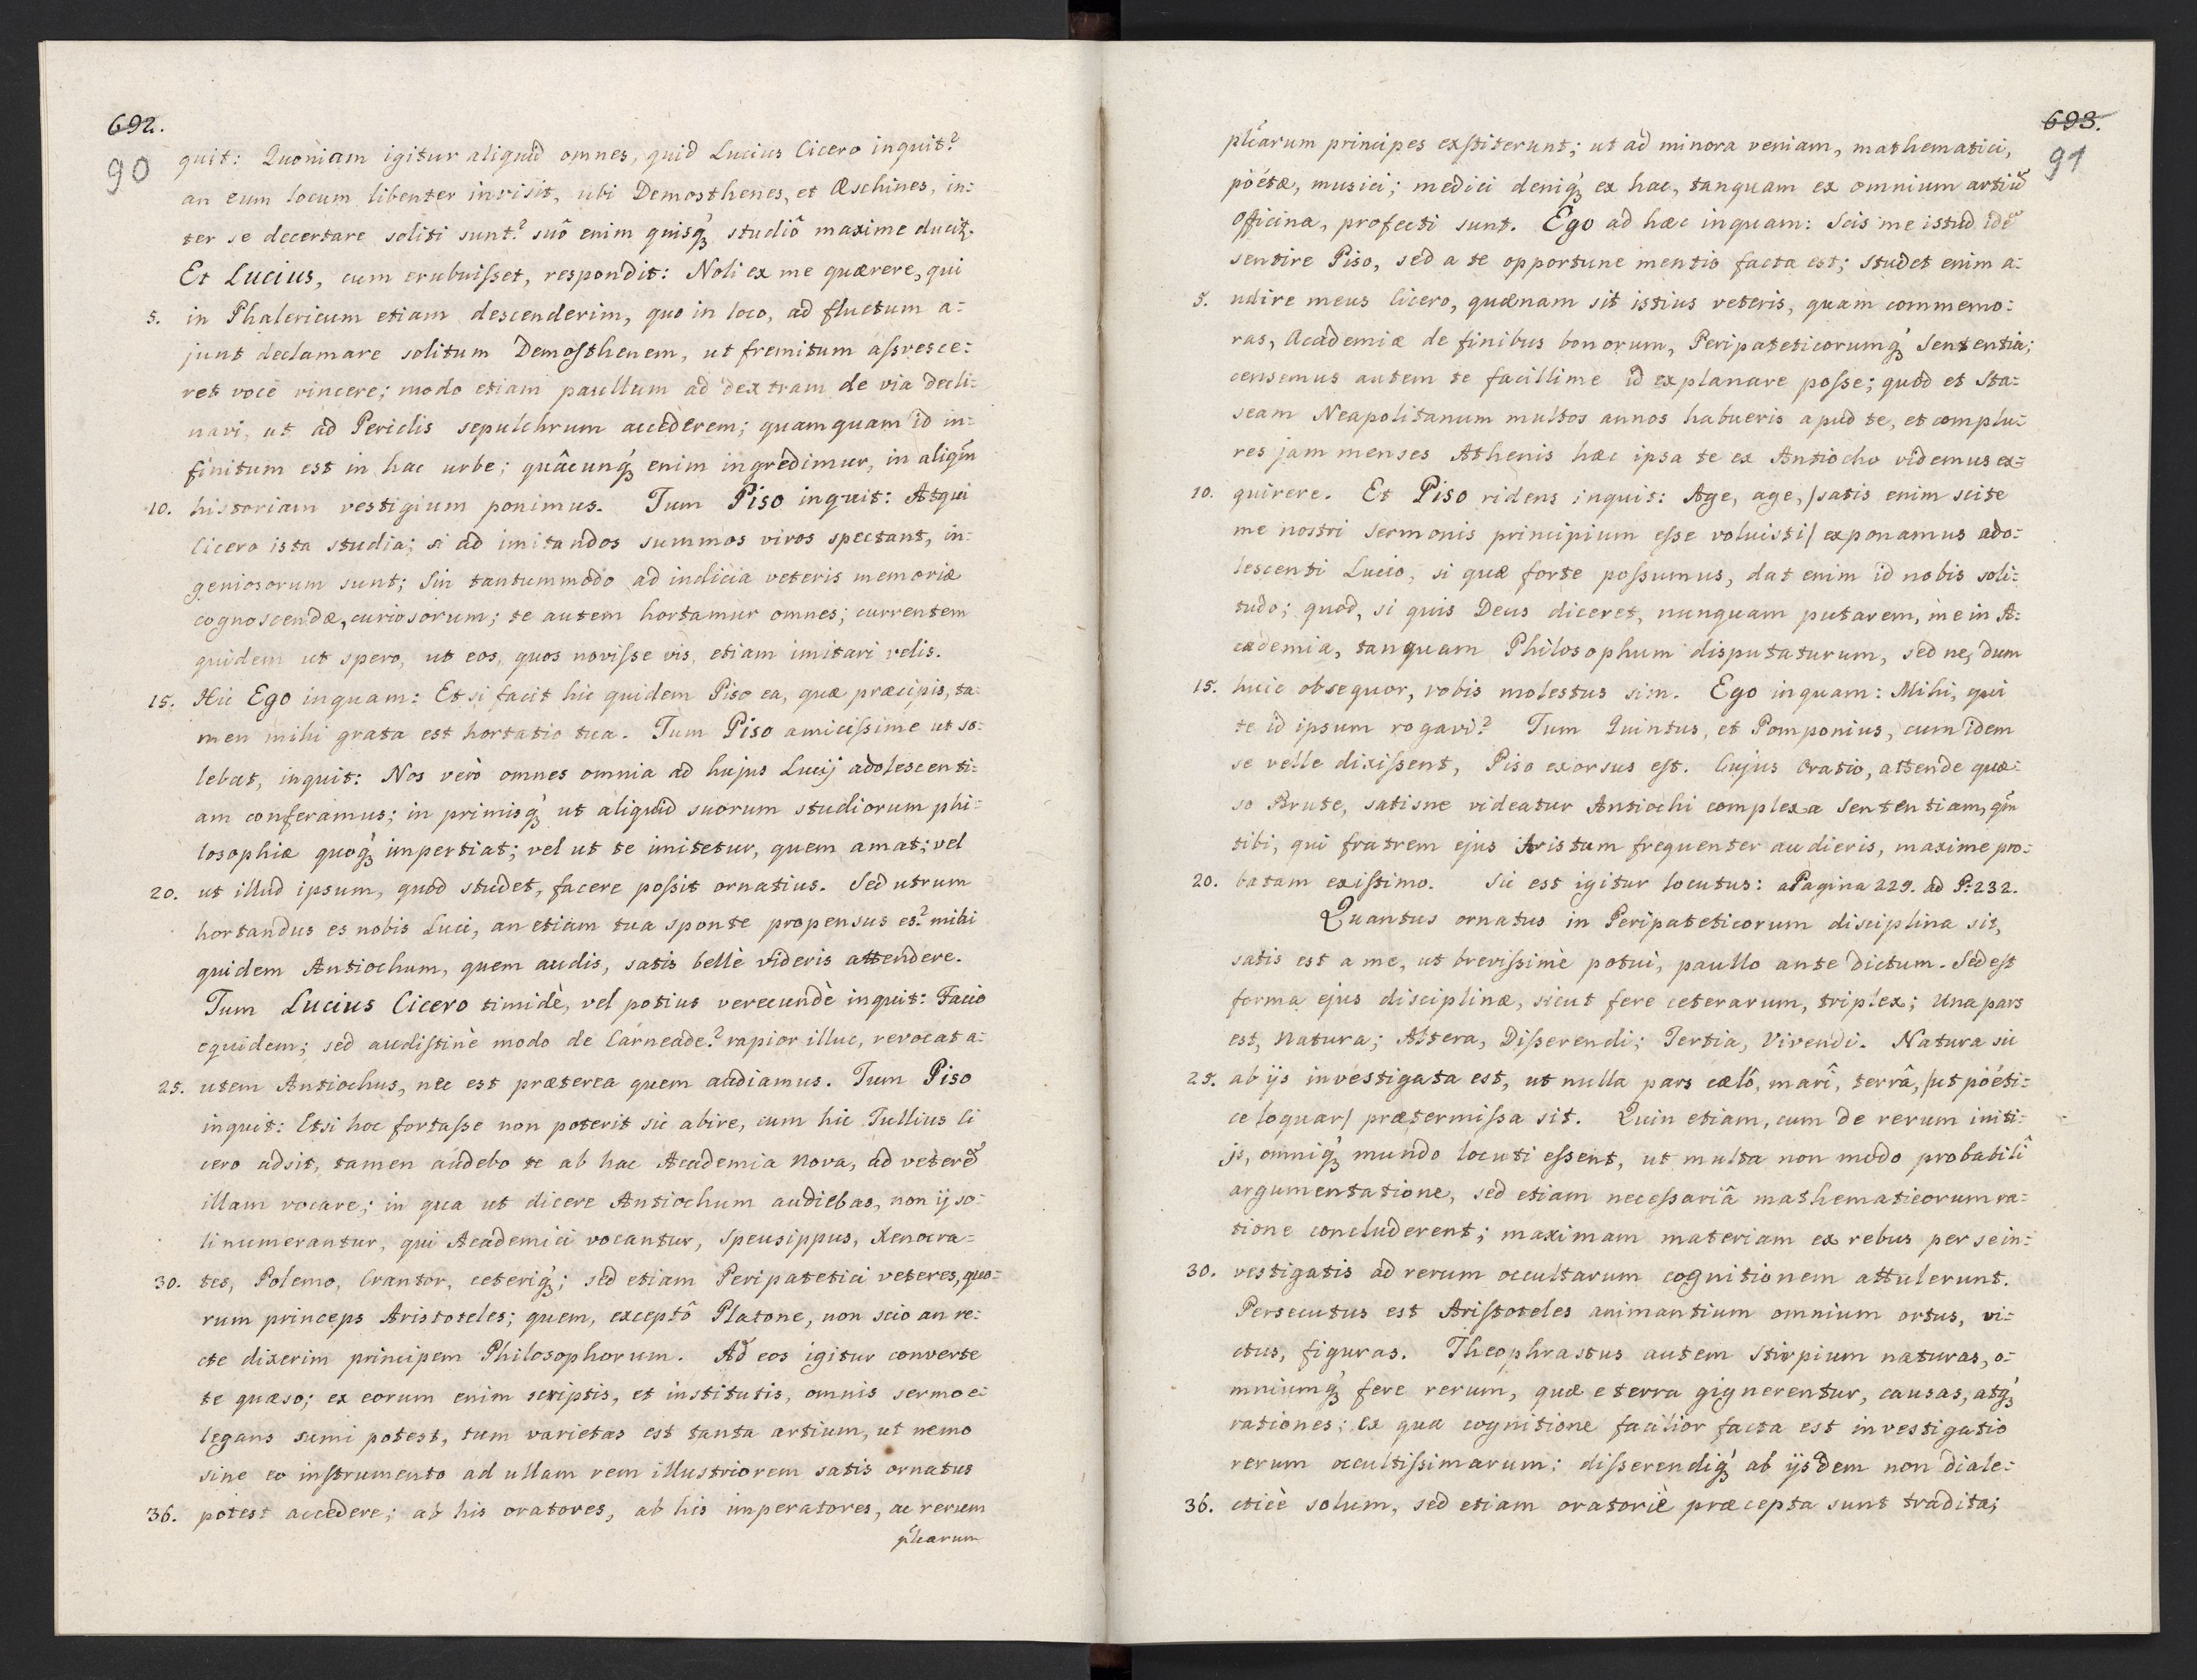 692.
90
quit: Quoniam igitur aliquid omnes, quid Lucius Cicero inquit?
an eum locum libenter invisit, ubi Demosthenes, et Æschines, in:
ter se decertare soliti sunt? suô enim quisqꝫ studiô maxime ducitꝛ.
Et Lucius, cum erubuiſset, respondit: Noli ex me quærere, qui
5. in Phalericum etiam descenderim, quo in loco, ad fluctum a:
junt declamare solitum Demoſthenem, ut fremitum aſsvesce:
ret voce vincere; modo etiam paullum ad dextram de via decli:
navi, ut ad Periclis sepulchrum accederem; quamquam id in:
finitum est in hac urbe; quâcunqꝫ enim ingredimur, in aliqm̃
10. historiam vestigium ponimus. Tum Piso inquit: Atqui
Cicero ista studia; si ad imitandos summos viros spectant, in:
geniosorum sunt; Sin tantummodo ad indicia veteris memoriæ
cognoscendæ, curiosorum; te autem hortamur omnes; currentem
quidem ut spero, ut eos, quos noviſse vis, etiam imitari velis.
15. Hic Ego inquam: Et si facit hic quidem Piso ea, quæ præcipis, ta:
men mihi grata est hortatio tua. Tum Piso amiciſsime ut so:
lebat, inquit: Nos verò omnes omnia ad hujus Lucij adolescenti:
am conferamus; in primisqꝫ ut aliquid suorum studiorum phi:
losophiæ quoqꝫ impertiat; vel ut te imitetur, quem amat; vel
20. ut illud ipsum, quod studet, facere poſsit ornatius. Sed utrum
hortandus es nobis Luci, an etiam tua sponte propensus es? mihi
quidem Antiochum, quem audis, satis bellè videris attendere.
Tum Lucius Cicero timidè, vel potius verecundè inquit: Facio
equidem; sed audiſtinè modo de Carneade? rapior illuc, revocat a:
25. utem Antiochus, nec est præterea quem audiamus. Tum Piso
inquit: Etsi hoc fortaſse non poterit sic abire, cum hic Tullius Ci
cero adsit, tamen audebo te ab hac Academia nova, ad veterẽ
illam vocare; in qua ut dicere Antiochum audiebas, non ij so:
li numerantur, qui Academici vocantur, Speusippus, Xenocra=
30. tes, Polemo, Crantor, ceteriqꝫ; sed etiam Peripatetici veteres, quo:
rum princeps Aristoteles; quem, exceptô Platone, non scio an re:
cte dixerim principem Philosophorum. Ad eos igitur converte
te quæso; ex eorum enim scriptis, et institutis, omnis sermo e:
legans sumi potest, tum varietas est tanta artium, ut nemo
sine eo inſtrumento ad ullam rem illustriorem satis ornatus
36. potest accedere; ab his oratores, ab his imperatores, ac rerum
pl̃arum
693.
91
pl̃arum principes exſtiterunt; ut ad minora veniam, mathematici,
pöétæ, musici; medici deniqꝫ ex hac, tanquam ex omnium artiũ
officina, profecti sunt. Ego ad hæc inquam: Scis me istud idẽ
sentire Piso, sed a te opportune mentio facta est; studet enim a:
5. udire meus Cicero, quænam sit istius veteris, quam commemo:
ras, Academiæ de finibus bonorum, Peripateticorumqꝫ Sententia;
censemus autem te facillime id explanare poſse; quod et Sta:
seam Neapolitanum multos annos habueris apud te, et complu:
res jam menses Athenis hæc ipsa te ex Antiocho videmus ex:
10. quirere. Et Piso ridens inquit: Age, age, /satis enim scite
me nostri sermonis principium eſse voluisti/ exponamus ado:
lescenti Lucio, si quæ forte poſsumus, dat enim id nobis soli:
tudo; quod, si quis Deus diceret, nunquam putarem, me in A:
cademia, tanquam Philosophum disputaturum, sed ne, dum
15. huic obsequor, vobis molestus sim. Ego inquam: Mihi, qui
te id ipsum rogavi? Tum Quintus, et Pomponius, cum idem
se velle dixiſsent, Piso exorsus eſt. Cujus Oratio, attende quæ:
so Brute, satisne videatur Antiochi complexa Sententiam, qm̃
tibi, qui fratrem ejus Aristum frequenter audieris, maxime pro:
20. batam exiſtimo. Sic est igitur locutus: a Pagina 229. ad P: 232.
Quantus ornatus in Peripateticorum disciplina sit,
satis est a me, ut breviſsimè potui, paullo ante dictum. Sed eſt
forma ejus disciplinæ, sicut fere ceterarum, triplex; Una pars
est, Natura; Altera, Diſserendi; Tertia, Vivendi. Natura sic
25. ab ijs investigata est, ut nulla pars cælô, marî, terrâ, /ut pöéti:
ce loquar/ prætermiſsa sit. Quin etiam, cum de rerum initi:
js, omniqꝫ mundo locuti eſsent, ut multa non modo probabilî
argumentatione, sed etiam neceſsariâ mathematicorum ra:
tione concluderent; maximam materiam ex rebus per se in:
30. vestigatis ad rerum occultarum cognitionem attulerunt.
Persecutus est Ariſtoteles animantium omnium ortus, vi:
ctus, figuras. Theophrastus autem stirpium naturas, o:
mniumqꝫ fere rerum, quæ e terra gignerentur, causas, atqꝫ
rationes; ex qua cognitione facilior facta est investigatio
rerum occultiſsimarum; diſserendiqꝫ ab ijsdem non diale:
36. cticè solum, sed etiam oratoriè præcepta sunt tradita;